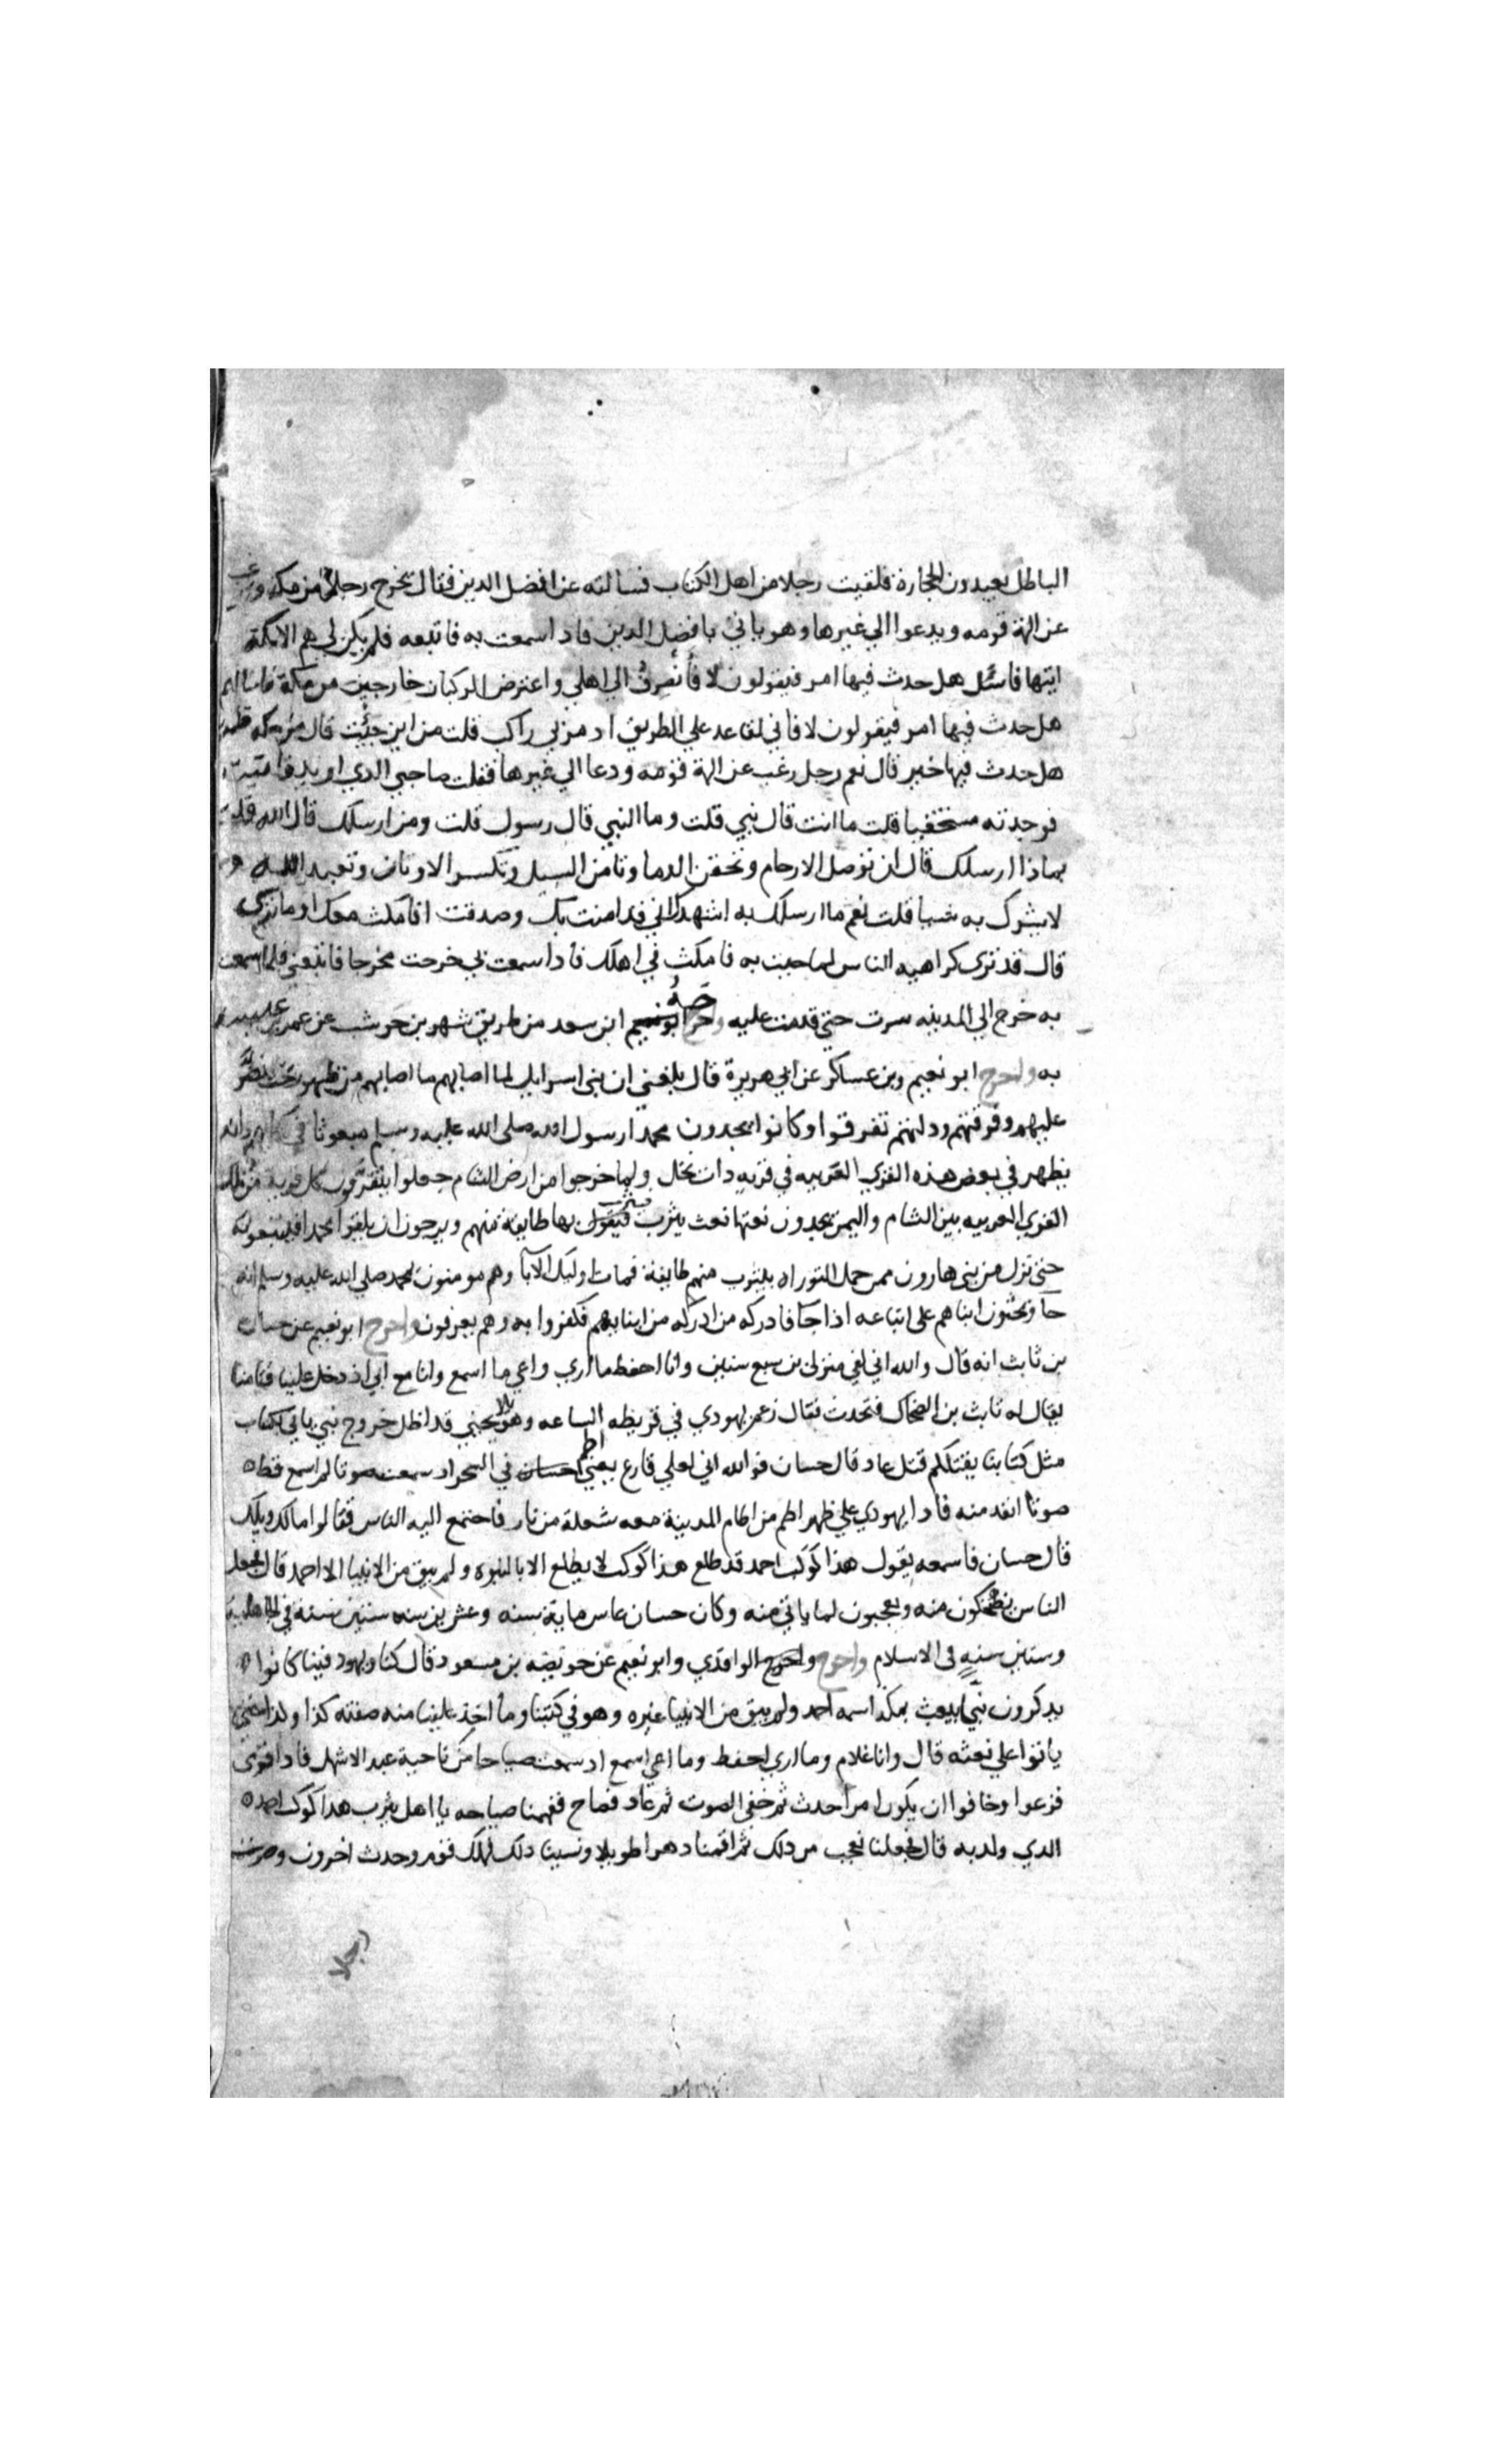 الباطل يعبدون الحجارة فلقيت رجلا من اهل الكتاب فسالته عن افضل الدين فقال يخرج رجل من مكه ويرغب
عن الهة قومه ويدعوا الي غيرها وهو ياتي بافضل الدين فاذا سمعت به فاتبعه فلم يكن لي هم الا مكة
اتيها فاسئل هل حدث فيها امر فيقولون لا فأنصرف الي اهلي واعترض الركبان خارجين من مكة فاسالهم
هل حدث فيها امر فيقولون لا فاني لقاعد علي الطريق اد مر بي راكب قلت من اين جئت قال من مكه قلت
هل حدث فيها خبر قال نعم رجل رغب عن الهة قومه ودعا الي غيرها فقلت صاحبي الدي اريد فاتيته
فوجدته مستخفيا قلت ما انت قال نبي قلت وما النبي قال رسول قلت ومن ارسلك قال الله قلت
بماذا ارسلك قال ان توصل الارحام وتحقن الدما وتامن السبل وتكسر الاوثان وتعبد الله
لا يشرك به شيا قلت نعم ما ارسلك به اشهدك اني قد امنت بك وصدقت افامكث معك او ما تري
قال قد تري كراهيه الناس لما جيت به فامكث في اهلك فاداسمعت بي خرجت مخرجا فاتبعني فلما سمعت
به خرج الي المدينه سرت حتي قدمت عليه واخرج ابن سعد من طريق شهر بن حوشب عن عمرو بن عبسه
به واخرج ابو نعيم وبن عساكر عن ابي هريرة قال بلغني ان بني اسرايل لما اصابهم ما اصابهم من ظهور بخت نصر
عليهم وفرقتهم ودلتهم تفرقوا وكانوا يجدون محمدا رسول الله صلي الله عليه وسلم مبعوثا في كتابهم وانه
يظهر في بعض هذه القري العربيه في قريه دات نخل ولما خرجوا من ارض الشام جعلوا يتقرون كل قرية من تلك
القري العربيه بين الشام واليمن يجدون نعتها نعت يثرب فينزل بها طايفة منهم ويرجون ان يلقوا محمدا فيتبعونه
حتي نزل من بني هارون ممن حمل التوراه بيثرب منهم طايفة فمات اوليك الآبا وهم مومنون بمحمد صلي الله عليه وسلم انه
جآ ويحثون ابناهم علي اتباعه اذا جآ فادركه من ادركه من ابنايهم فكفروا به وهم يعرفون واخرج ابو نعيم عن حسان
بن ثابت انه قال والله اني لفي منزلي بن سبع سنين وانا احفظ ما اري واعي ما اسمع وانا مع ابي اذ دخل علينا فتا منا
يقال له ثابت بن الضحاك فتحدث فقال زعم يهودي في قريظه الساعه وهو يلاحيني قد اظل خروج نبي ياتي بكتاب
مثل كتابنا يقتلكم قتل عاد قال حسان فوالله اني لعلي فارع يعني اطم حسان في السحر اد سمعت صوتا لم اسمع قط
صوتا انفد منه فادا يهودي علي ظهر اطم من اطام المدينة معه شعلة من نار فاجتمع اليه الناس فقالوا مالك ويلك
قال حسان فاسمعه يقول هذا كوكب احمد قد طلع هذا كوكب لا يطلع الا بالنبوه ولم يبق من الانبيا الا احمد قال فجعل
الناس يضحكون منه ويعجبون لما ياتي منه وكان حسان عاش ماية سنه وعشرين سنه ستين سنة في الجاهلية
وستين سنه في الاسلام واخرج واخرج الواقدي وابو نعيم عن حويصه بن مسعود قال كنا ويهود فينا كانوا
يدكرون نبيا يبعث بمكه اسمه احمد ولم يبق من الانبيا غيره وهو في كتبنا وما اخذ علينا منه صفته كذا وكذا حتي
ياتوا علي نعته قال وانا غلام وما اري احفظ وما اسمع اعي اد سمعت صياحا من ناحية عبد الاشهل فادا قوم
فزعوا وخافوا ان يكون امرا حدث ثم خفي الصوت ثم عاد فصاح ففهمنا صياحه يا اهل يثرب هدا كوكب احمد
الدي ولد به قال فجعلنا نعجب من دلك ثم اقمنا دهرا طويلا ونسينا دلك فهلك قوم وحدث اخرون وصرت
رجلا